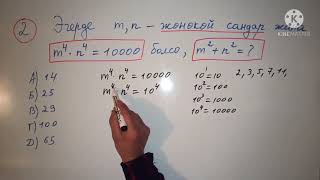 2 Эгерде m, n - жөнөкөй сандар
m⁴ · n⁴ = 10000 болсо, m² + n² = ?
А) 14
Б) 25
В) 29
Г) 100
Д) 65
m⁴ · n⁴ = 10000
m⁴ · n⁴ = 10⁴
10¹ = 10
10² = 100
10³ = 1000
10⁴ = 10000
2, 3, 5, 7, 11,
KINEMASTER